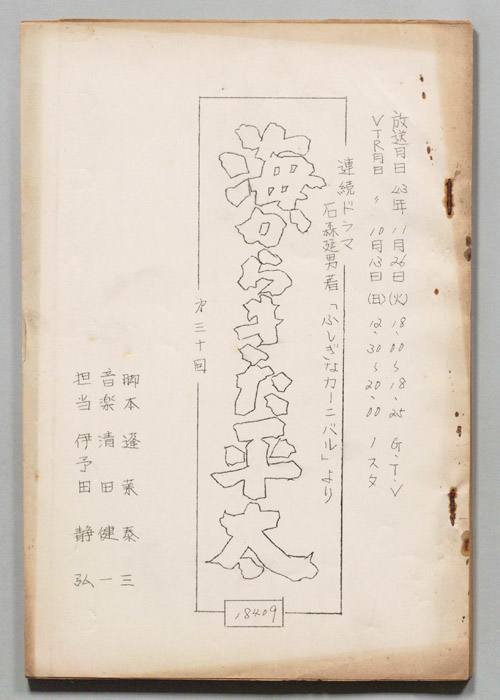 放送月日 43年 11月26日(火) 18.00〜18.25 G.T.V
VTR月日 〃 10月13日(日) 12.30〜20.00 1スタ
連続ドラマ
石森延男著「ふしぎなカーニバル」より
海からきた平太
才三十回
脚本 蓬莱泰三
音楽 清田健一
担当 伊予田静弘
18409